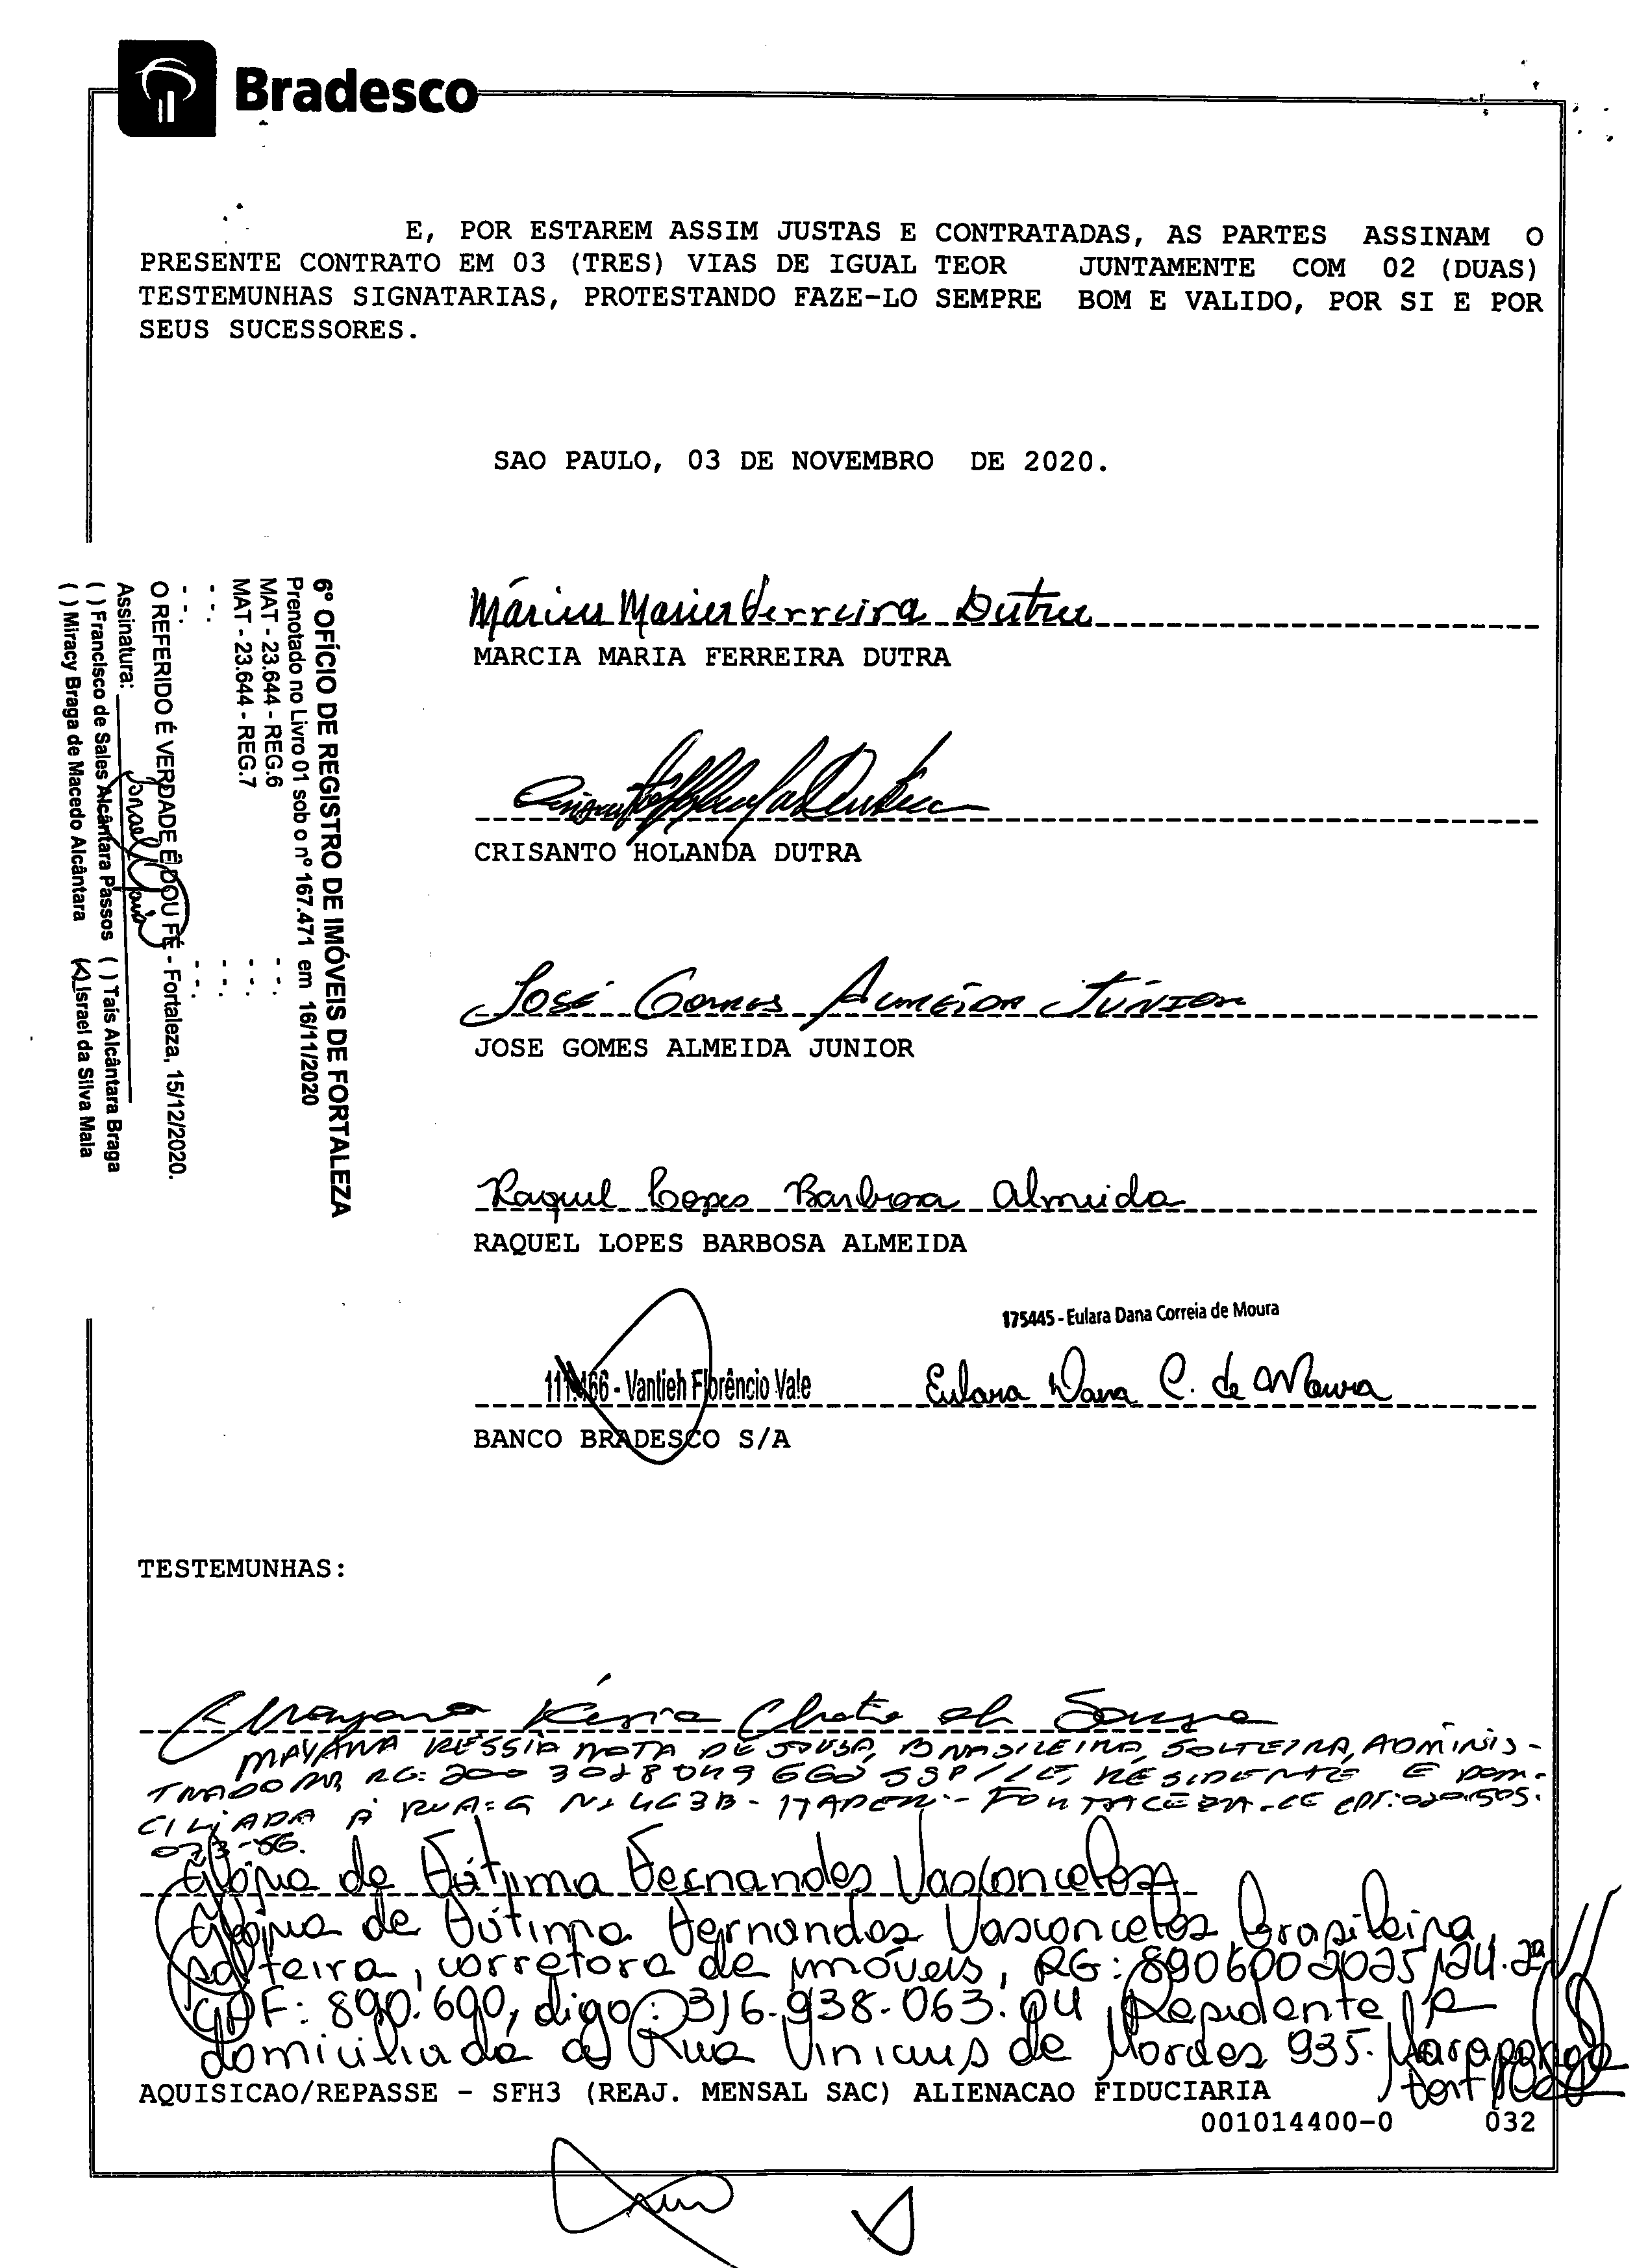 Bradesco
E, POR ESTAREM ASSIM JUSTAS E CONTRATADAS, AS PARTES ASSINAM O
PRESENTE CONTRATO EM 03 (TRES) VIAS DE IGUAL TEOR JUNTAMENTE COM 02 (DUAS)
TESTEMUNHAS SIGNATARIAS, PROTESTANDO FAZE-LO SEMPRE BOM E VALIDO, POR SI E POR
SEUS SUCESSORES.
SAO PAULO, 03 DE NOVEMBRO DE 2020.
6º OFÍCIO DE REGISTRO DE IMÓVEIS DE FORTALEZA
Prenotado no Livro 01 sob o nº 167.471 em 16/11/2020
MAT - 23.644 - REG.6
MAT - 23.644 - REG.7
O REFERIDO É VERDADE E DOU FÉ - Fortaleza, 15/12/2020.
Assinatura:
( ) Francisco de Sales Alcântara Passos ( ) Taís Alcântara Braga
( ) Miracy Braga de Macedo Alcântara (X) Israel da Silva Maia
Márcia Maria Ferreira Dutra
MARCIA MARIA FERREIRA DUTRA
Crisanto Holanda Dutra
CRISANTO HOLANDA DUTRA
José Gomes Almeida Júnior
JOSE GOMES ALMEIDA JUNIOR
Raquel Lopes Barbosa Almeida
RAQUEL LOPES BARBOSA ALMEIDA
175445 - Eulara Dana Correia de Moura
- Vantieh Florêncio Vale Eulara Dana C. de Moura
BANCO BRADESCO S/A
TESTEMUNHAS:
Mayana Késsia Mota de Sousa
MAYANA KÉSSIA MOTA DE SOUSA, BRASILEIRA, SOLTEIRA, ADMINIS-
TRADORA, RG: SSP/CE, RESIDENTE E DOMI-
CILIADA À RUA: G Nº 463B - ITAPERI - FORTALEZA-CE CPF:
Glória de Fátima Fernandes Vasconcelos
Glória de Fátima Fernandes Vasconcelos brasileira,
solteira, corretora de imóveis, RG:
CPF: 890.690, digo: 316.938.063.04, Residente e
domiciliada à Rua Vinicius de Moraes 935. Maraponga
AQUISICAO/REPASSE - SFH3 (REAJ. MENSAL SAC) ALIENACAO FIDUCIARIA
001014400-0 032